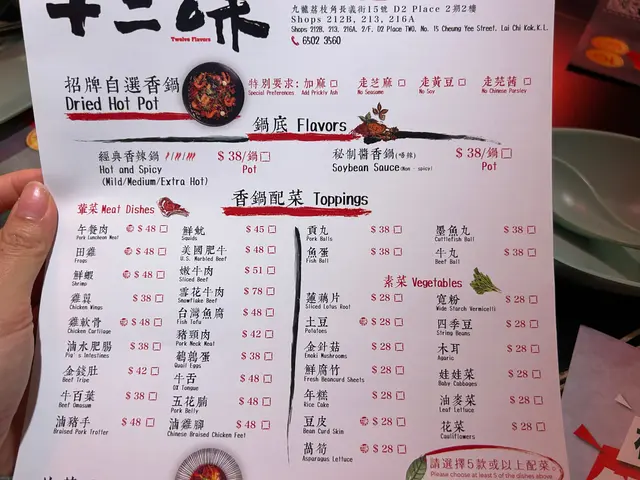 十二味
Twelve Flavors
九龍荔枝角長義街15號 D2 Place 2期2樓
Shops 212B, 213, 216A
Shops 212B, 213, 216A, 2/F, D2 Place TWO, No. 15 Cheung Yee Street, Lai Chi Kok,K.L.
6502 3560
招牌自選香鍋
Dried Hot Pot
特別要求: 加麻 走芝麻 走黃豆 走芫茜
Special Preferences Add Prickly Ash No Seasame No Soy No Chinese Parsley
鍋底 Flavors
經典香辣鍋 $ 38/鍋
Hot and Spicy Pot
(Mild/Medium/Extra Hot)
秘制醬香鍋(唔辣) $ 38/鍋
Soybean Sauce(Non - spicy) Pot
香鍋配菜 Toppings
葷菜 Meat Dishes
午餐肉 $ 48
Pork Luncheon Meat
田雞 $ 48
Frogs
鮮蝦 $ 48
Shrimp
雞翼 $ 38
Chicken Wings
雞軟骨 $ 48
Chicken Cartilage
滷水肥腸 $ 38
Pig's Intestines
金錢肚 $ 42
Beef Tripe
牛百葉 $ 38
Beef Omasum
滷豬手 $ 48
Braised Pork Trotter
鮮魷 $ 45
Squids
美國肥牛 $ 48
U.S. Marbled Beef
嫩牛肉 $ 51
Sliced Beef
雪花牛肉 $ 78
Snowflake Beef
台灣魚腐 $ 48
Fish Tofu
豬頸肉 $ 42
Pork Neck Meat
鵪鶉蛋 $ 38
Quail Eggs
牛舌 $ 48
OX Tongue
五花腩 $ 48
Pork Belly
滷雞腳 $ 48
Chinese Braised Chicken Feet
貢丸 $ 38
Pork Balls
魚蛋 $ 38
Fish Ball
墨魚丸 $ 38
Cuttlefish Ball
牛丸 $ 38
Beef Ball
素菜 Vegetables
蓮藕片 $ 28
Sliced Lotus Root
土豆 $ 28
Potatoes
金針菇 $ 28
Enoki Mushrooms
鮮腐竹 $ 28
Fresh Beancurd Sheets
年糕 $ 28
Rice Cake
豆皮 $ 28
Bean Curd Skin
萵筍 $ 28
Asparagus Lettuce
寬粉 $ 28
Wide Starch Vermicelli
四季豆 $ 28
String Beans
木耳 $ 28
Agaric
娃娃菜 $ 28
Baby Cabbages
油麥菜 $ 28
Leaf Lettuce
花菜 $ 28
Cauliflowers
請選擇5款或以上配菜。
Please choose at least 5 of the dishes above